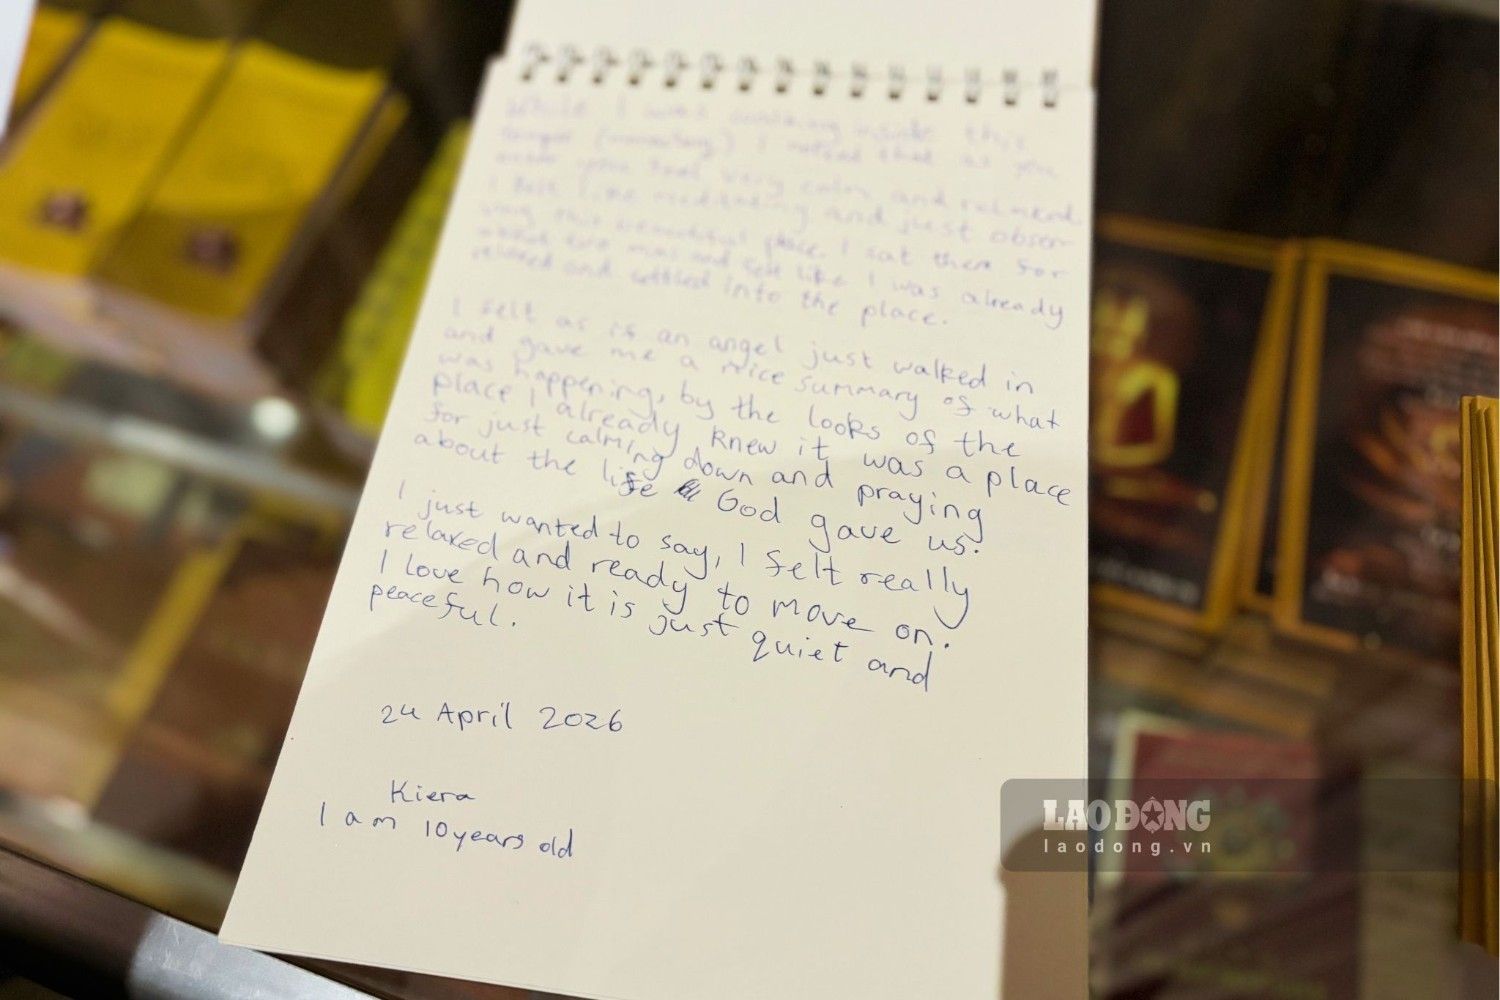 While I was walking inside this
temple (monastery) I noticed that as you
enter you feel very calm and relaxed.
I felt like meditating and just obser-
ving this beautiful place. I sat there for
about five mins and felt like I was already
relaxed and settled into the place.
I felt as if an angel just walked in
and gave me a nice summary of what
was happening, by the looks of the
place I already knew it was a place
for just calming down and praying
about the life God gave us.
I just wanted to say, I felt really
relaxed and ready to move on.
I love how it is just quiet and
peaceful.
24 April 2026
Kiera
I am 10 years old
LAO ĐỘNG
laodong.vn